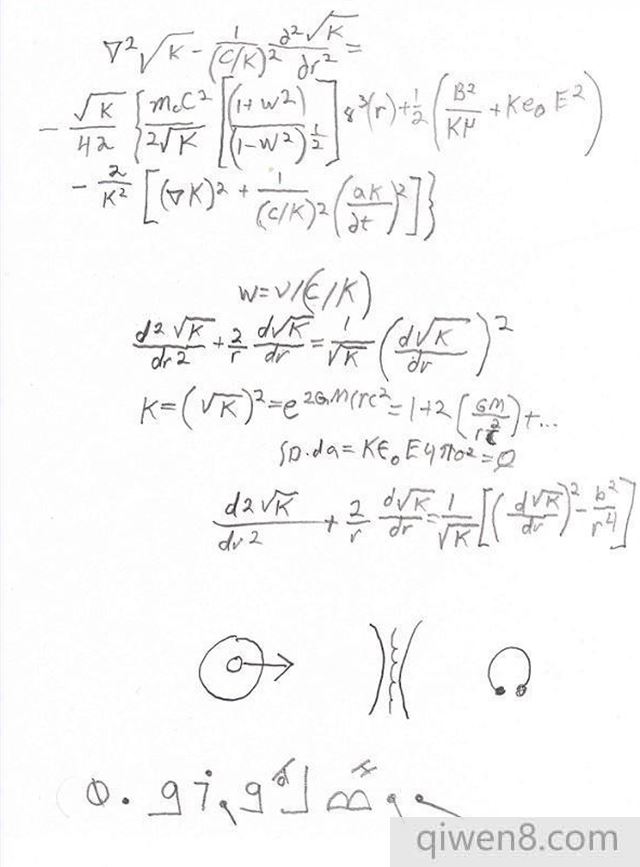 ∇²√K − 1/(C/K)² ∂²√K/∂r² =
− √K/42 { m₀C²/2√K [ (1+W²)/(1−W²)^½ ] 8³(r) + ½ ( B²/Kμ + Ke₀E² )
− 2/K² [ (∇K)² + 1/(C/K)² (aK/∂t)² ] }
W=V/(C/K)
d2√K/dr2 + 2/r d√K/dr = 1/√K (d√K/dr)²
K=(√K)²=e^2GM(rc²=1+2(GM/rc²)+...
∫D.da=Kϵ₀E4πo²=Q
d2√K/dr2 + 2/r d√K/dr = 1/√K [(d√K/dr)² − b²/r4]
qiwen8.com